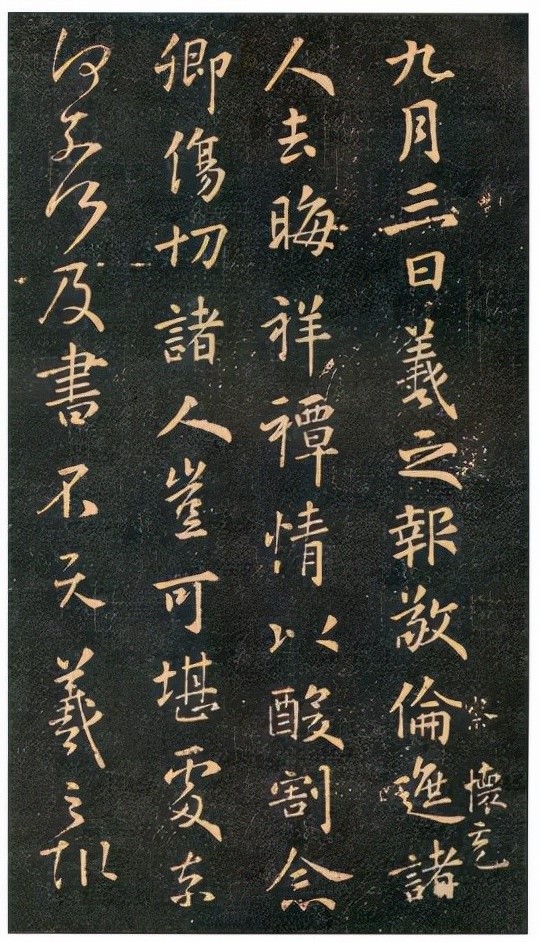 九月三日羲之報敬倫遮諸
察 懷充
人去晦祥禫情以酸割念
卿傷切諸人豈可堪處奈
何奈何及書不次羲之報